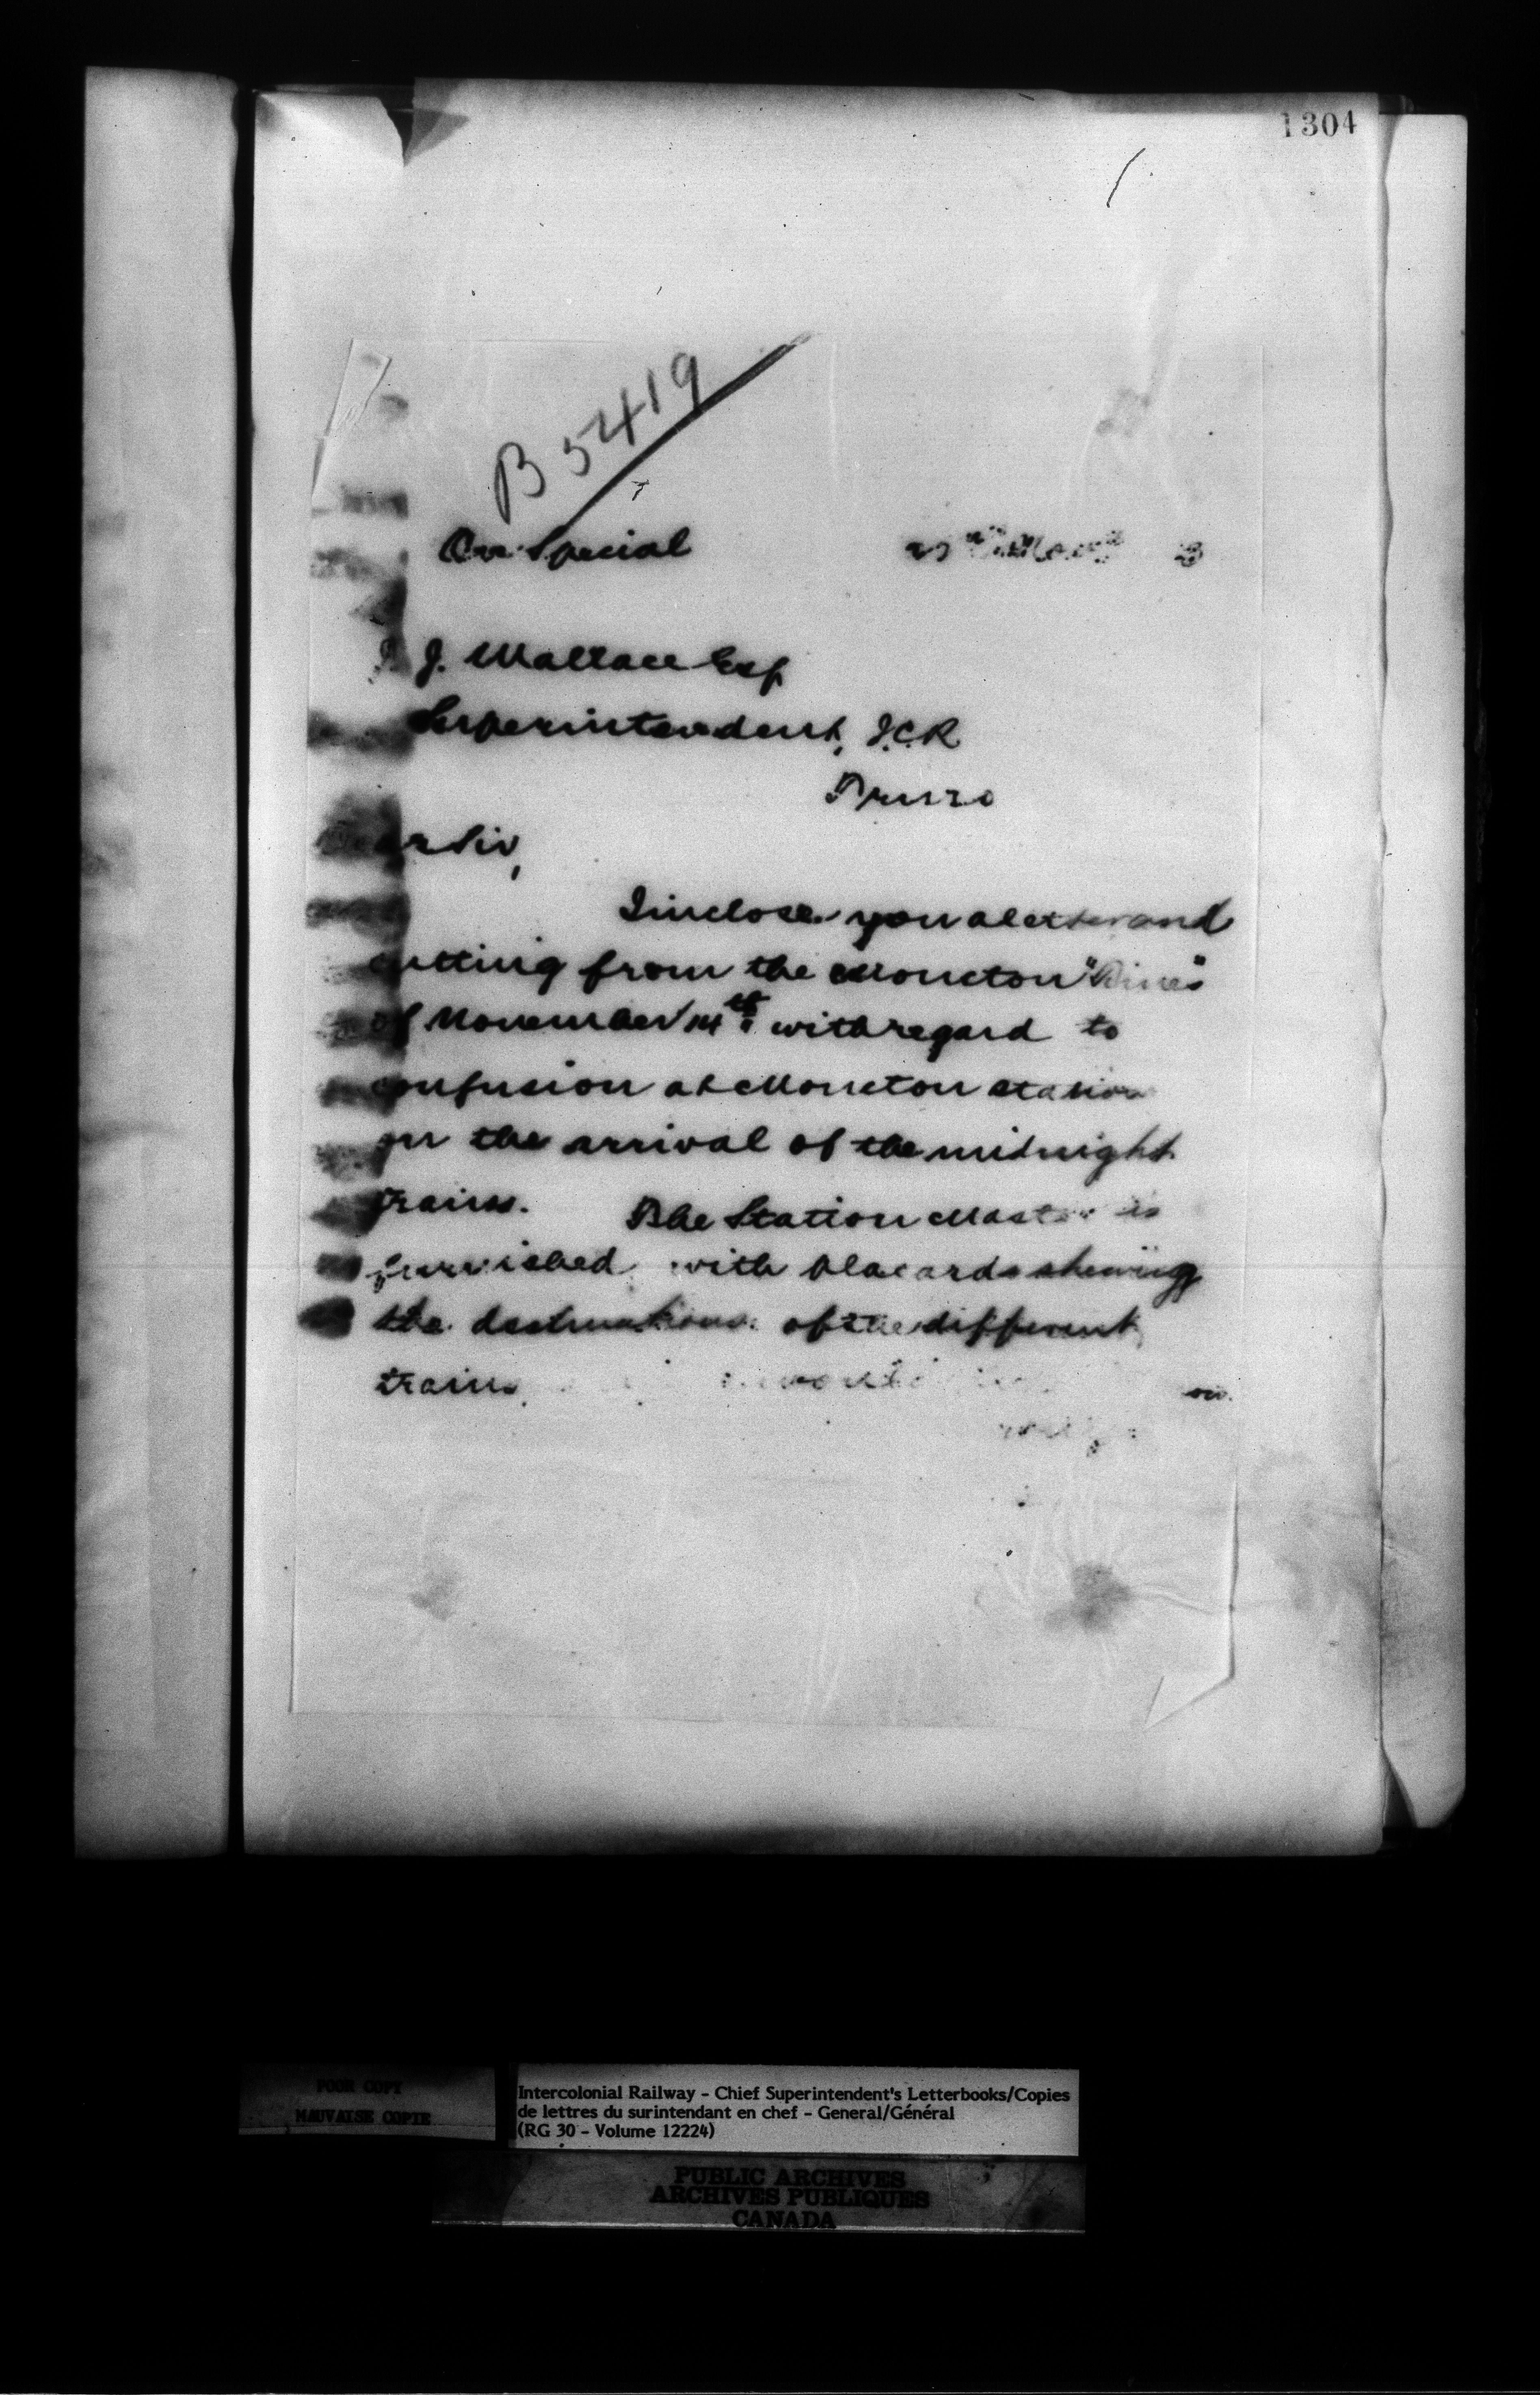 1304
B 5419
Our Special
J. Wallace Esq
Superintendent, I.C.R
Truro
Dear Sir,
I inclose you a letter and
cutting from the Moncton "Times"
of November 14th with regard to
confusion at Moncton station
on the arrival of the midnight
trains. The Station Master is
furnished with placards shewing
the destinations of the different
trains
POOR COPY
MAUVAISE COPIE
Intercolonial Railway - Chief Superintendent's Letterbooks/Copies
de lettres du surintendant en chef - General/Général
(RG 30 - Volume 12224)
PUBLIC ARCHIVES
ARCHIVES PUBLIQUES
CANADA